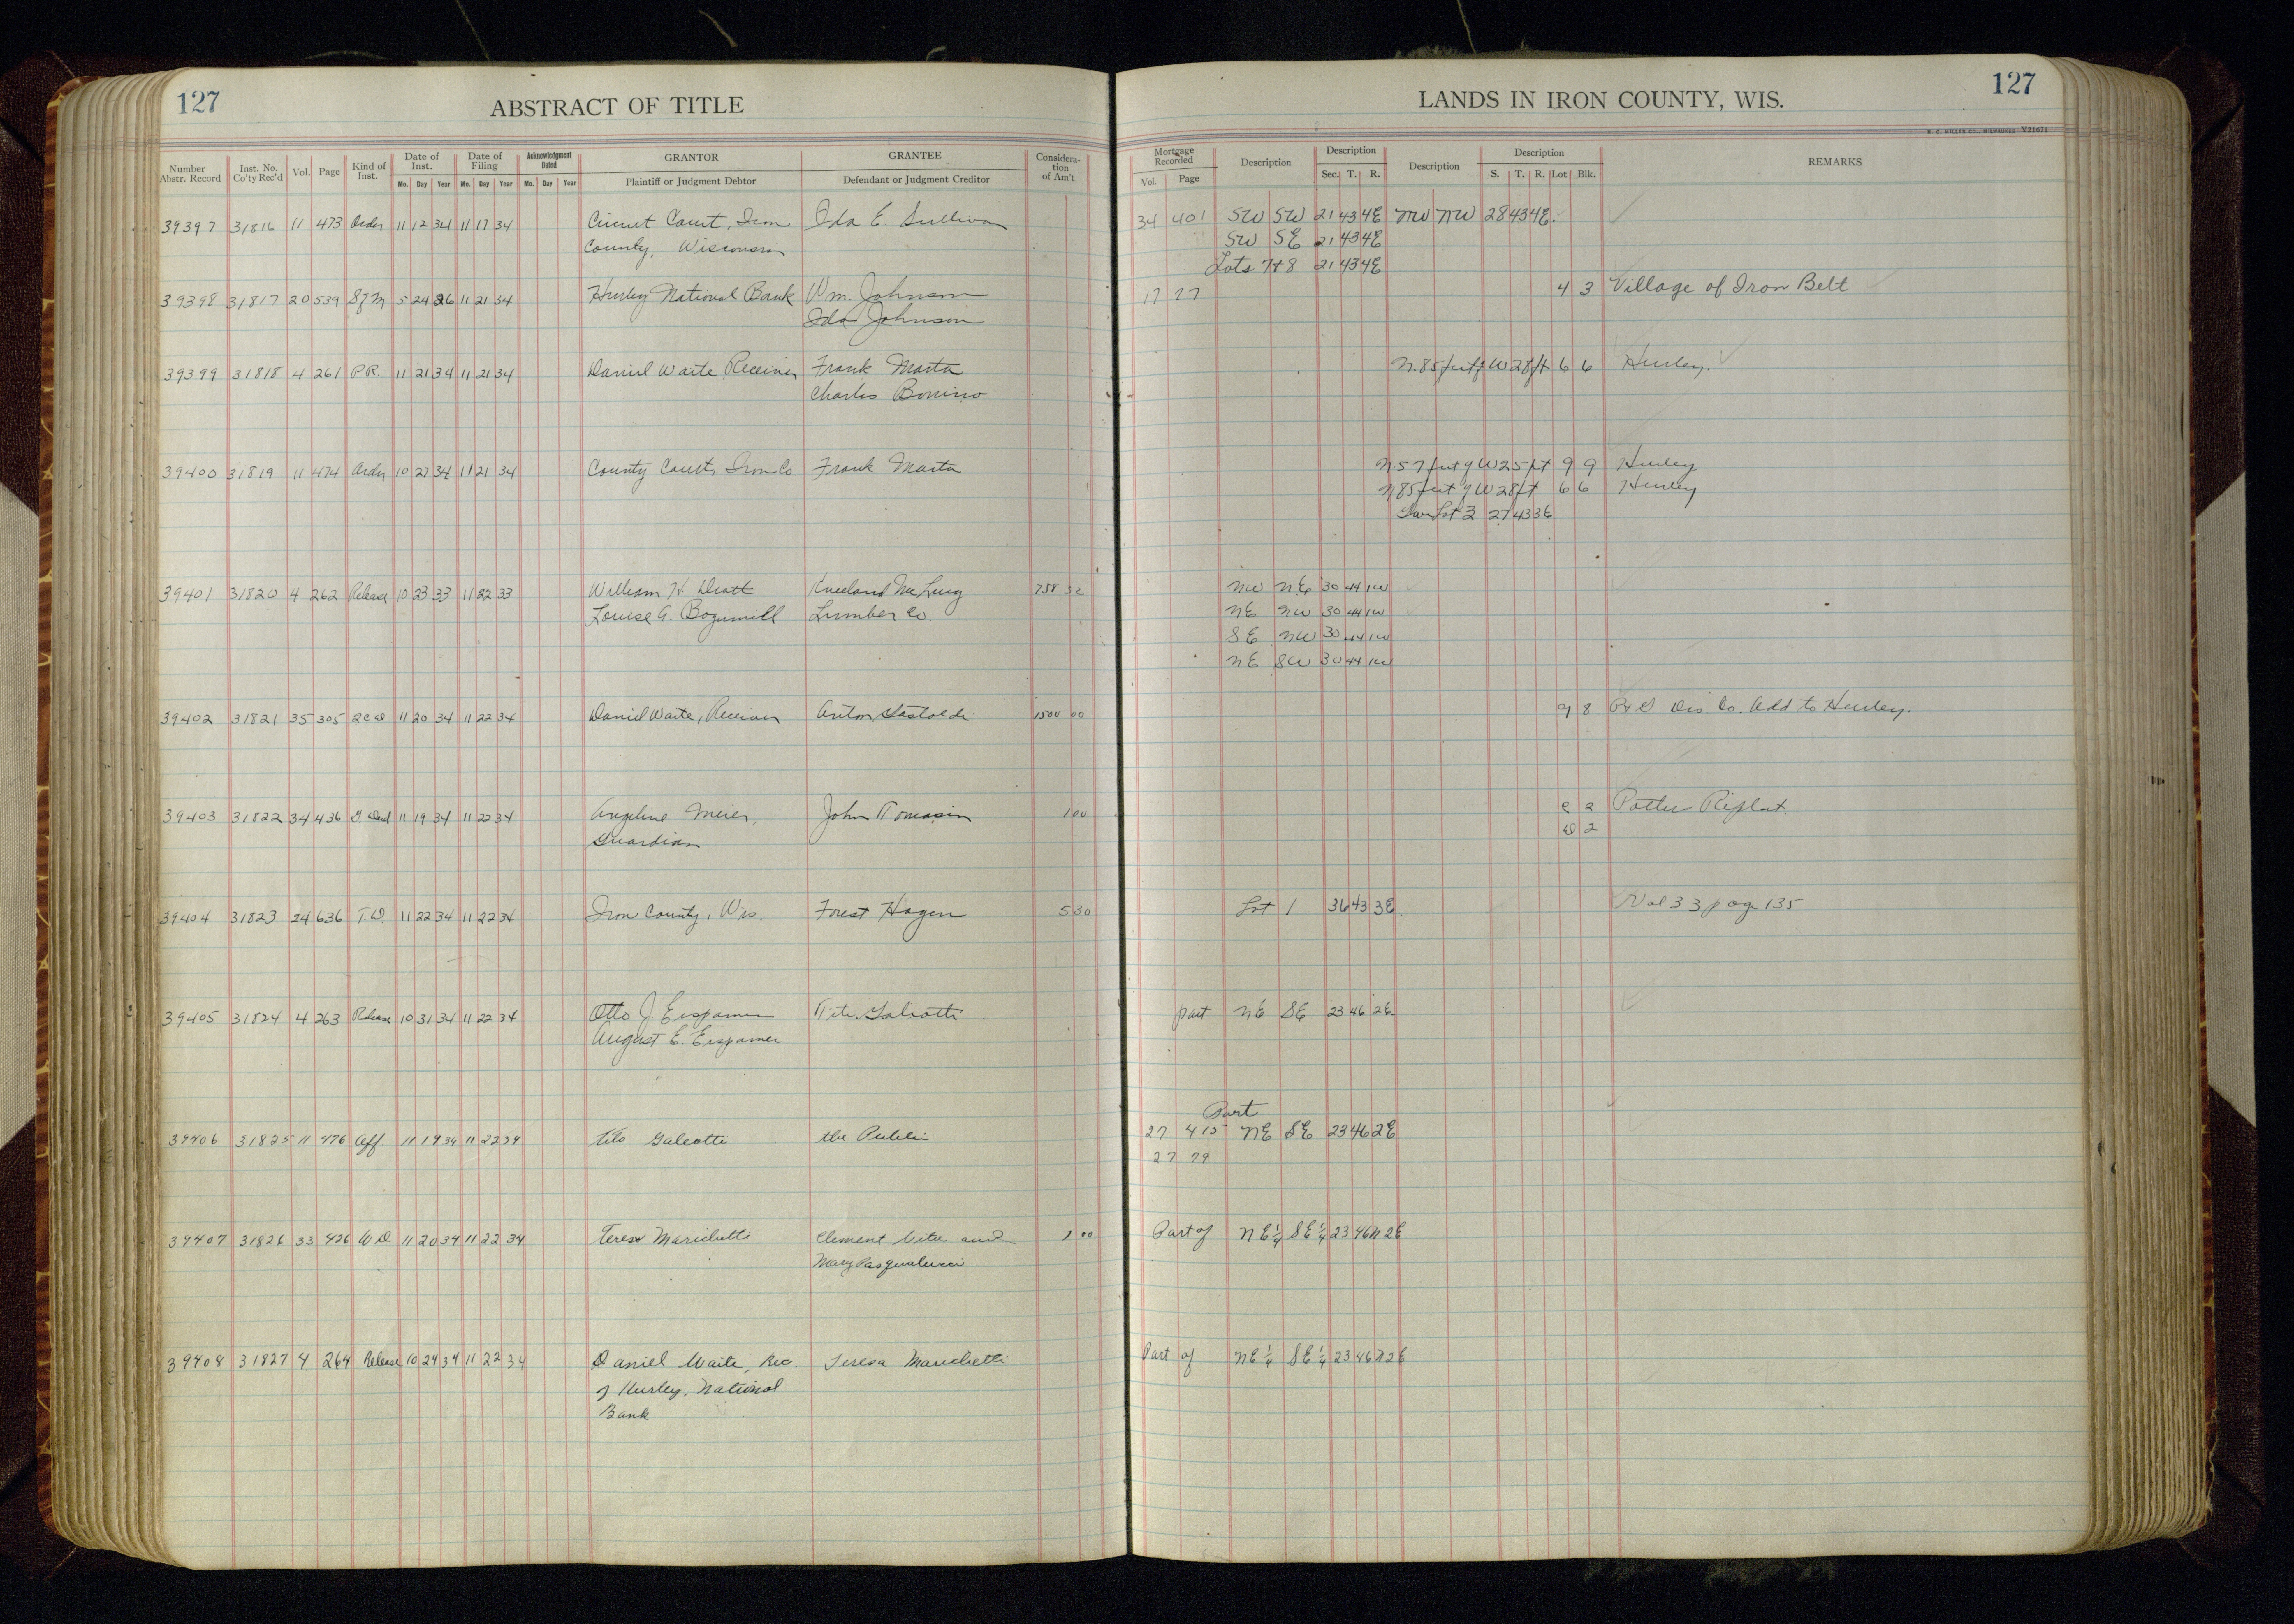 127
ABSTRACT OF TITLE
LANDS IN IRON COUNTY, WIS.
127
H. C. MILLER CO., MILWAUKEE V21671
Number Abstr. Record
Inst. No. Co'ty Rec'd
Vol.
Page
Kind of Inst.
Date of Inst.
Mo. Day Year
Date of Filing
Mo. Day Year
Acknowledgment Dated
Mo. Day Year
GRANTOR
Plaintiff or Judgment Debtor
GRANTEE
Defendant or Judgment Creditor
Considera- tion of Am't
Mortgage Recorded
Vol. Page
Description
Description
Sec. T. R.
Description
Description
S. T. R. Lot Blk.
REMARKS
39397 31816 11 473 Order 11 12 34 11 17 34 Circuit Court, Iron Ida E. Sullivan 34 401 SW SW 21 43 4E NW NW 28 43 4E
County, Wisconsin SW SE 21 43 4E
Lots 7+8 21 43 4E
39398 31817 20 539 5 24 26 11 21 34 Hurley National Bank Wm. Johnson 17 77 4 3 Village of Iron Belt
Ida Johnson
39399 31818 4 261 P.R. 11 21 34 11 21 34 Daniel Waite Receiver Frank Marta N. 85 feet of W 28 ft 6 6 Hurley.
Charles Bonino
39400 31819 11 474 Order 10 27 34 11 21 34 County Court, Iron Co Frank Marta N 57 feet of W 25 ft 9 9 Hurley
N 85 feet of W 28 ft 6 6 Hurley
Lot 3 27 43 3E
39401 31820 4 262 Release 10 23 33 11 22 33 William H. Kneeland McLurg 758 32 NW NE 30 44 1W
Louise A. Bogumill Lumber Co. NE NW 30 44 1W
SE NW 30 44 1W
NE SW 30 44 1W
39402 31821 35 305 11 20 34 11 22 34 Daniel Waite, Receiver Anton Gastoldi 1500 00 9 8 Co. Add to Hurley.
39403 31822 34 436 G. Deed 11 19 34 11 22 34 Angeline Meier, John Tomasin 1 00 2 Potter Replat
Guardian 2
39404 31823 24 636 T.D. 11 22 34 11 22 34 Iron County, Wis. Forest Hagen 5 30 Lot 1 36 43 3E Vol 33 page 135
39405 31824 4 263 Release 10 31 34 11 22 34 Otto J Erspamer Tito Galeotti part NE SE 23 46 2E
August E. Erspamer
Part
39406 31825 11 476 Aff. 11 19 34 11 22 34 Tito Galeotti the Public 27 415 NE SE 23 46 2E
27 79
39407 31826 33 426 W D 11 20 34 11 22 34 Teresa Marichetti Clement and 1 00 Part of NE¼ SE¼ 23 46N 2E
Mary
39408 31827 4 264 Release 10 24 34 11 22 34 Daniel Waite, Rec. Teresa Marichetti Part of NE¼ SE¼ 23 46N 2E
of Hurley, National
Bank